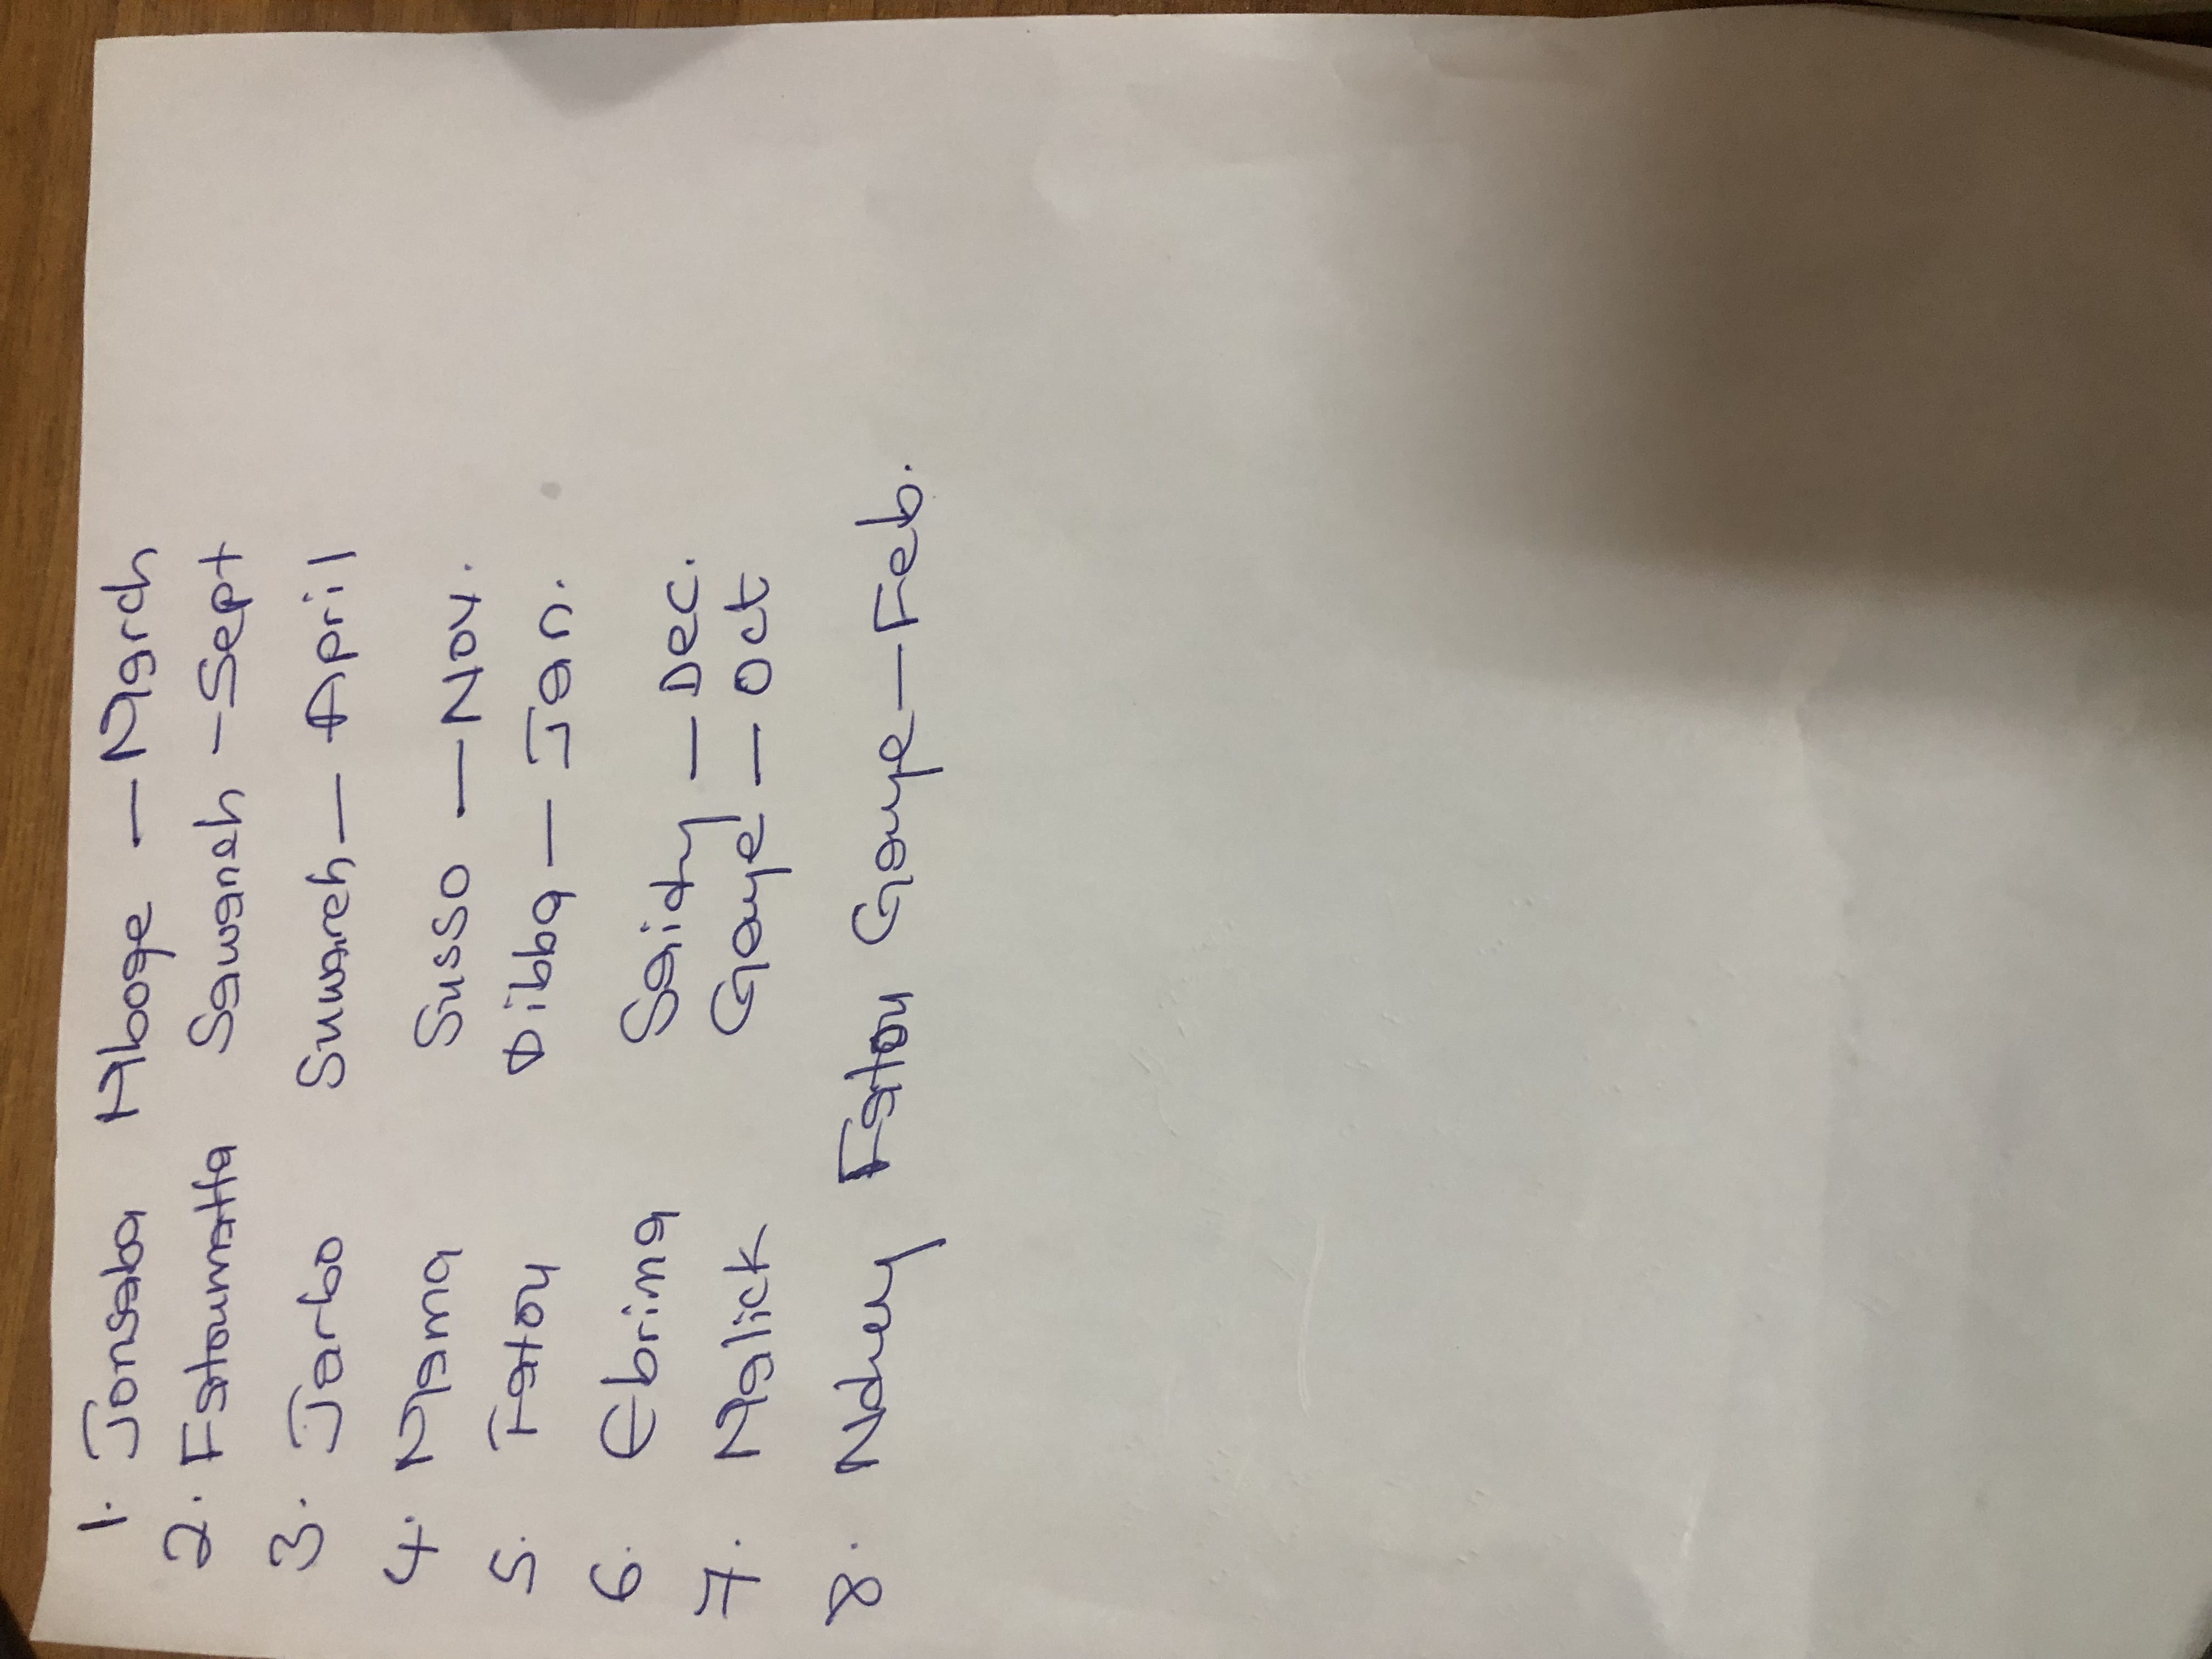 1. Jonsaba Mboge - March
2. Fatoumatta Sawaneh - Sept
3. Jarbo Suwareh - April
4. Mama Susso - Nov.
5. Fatou Dibba - Jan.
6. Ebrima Saidy - Dec.
7. Malick Gaye - Oct
8. Ndey Fatou Gaye - Feb.